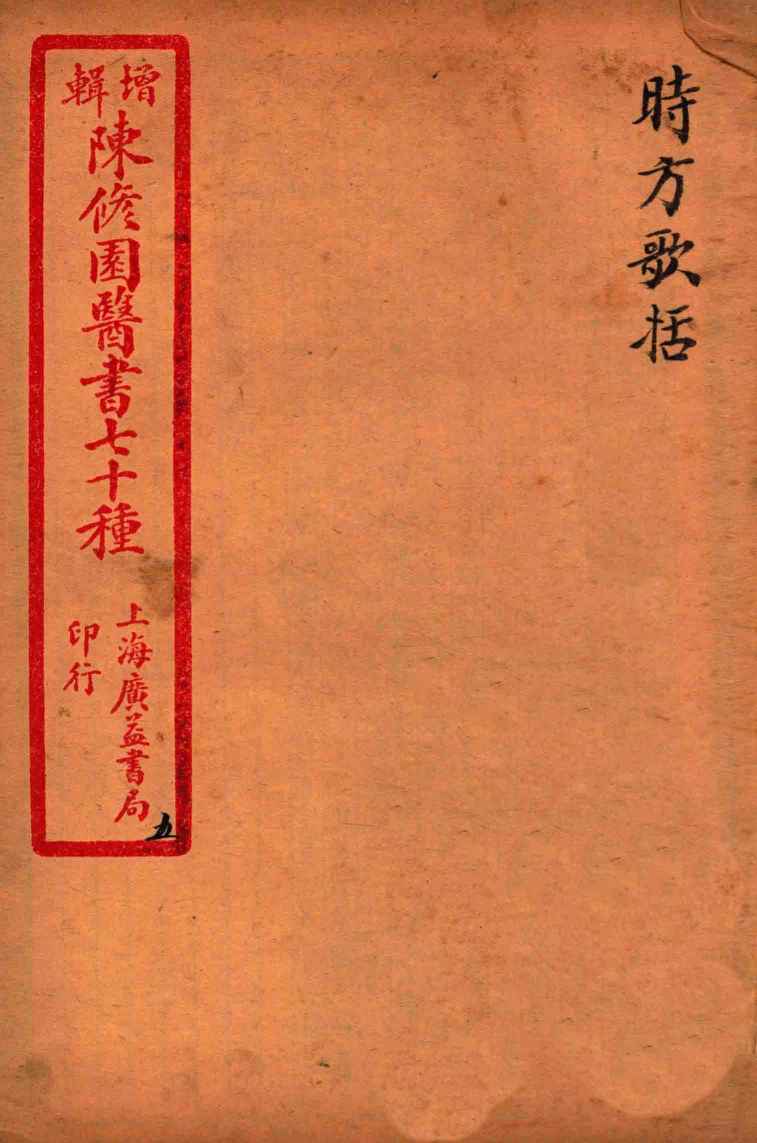 時方歌括
增輯
陳修園醫書七十種
上海廣益書局
印行
五